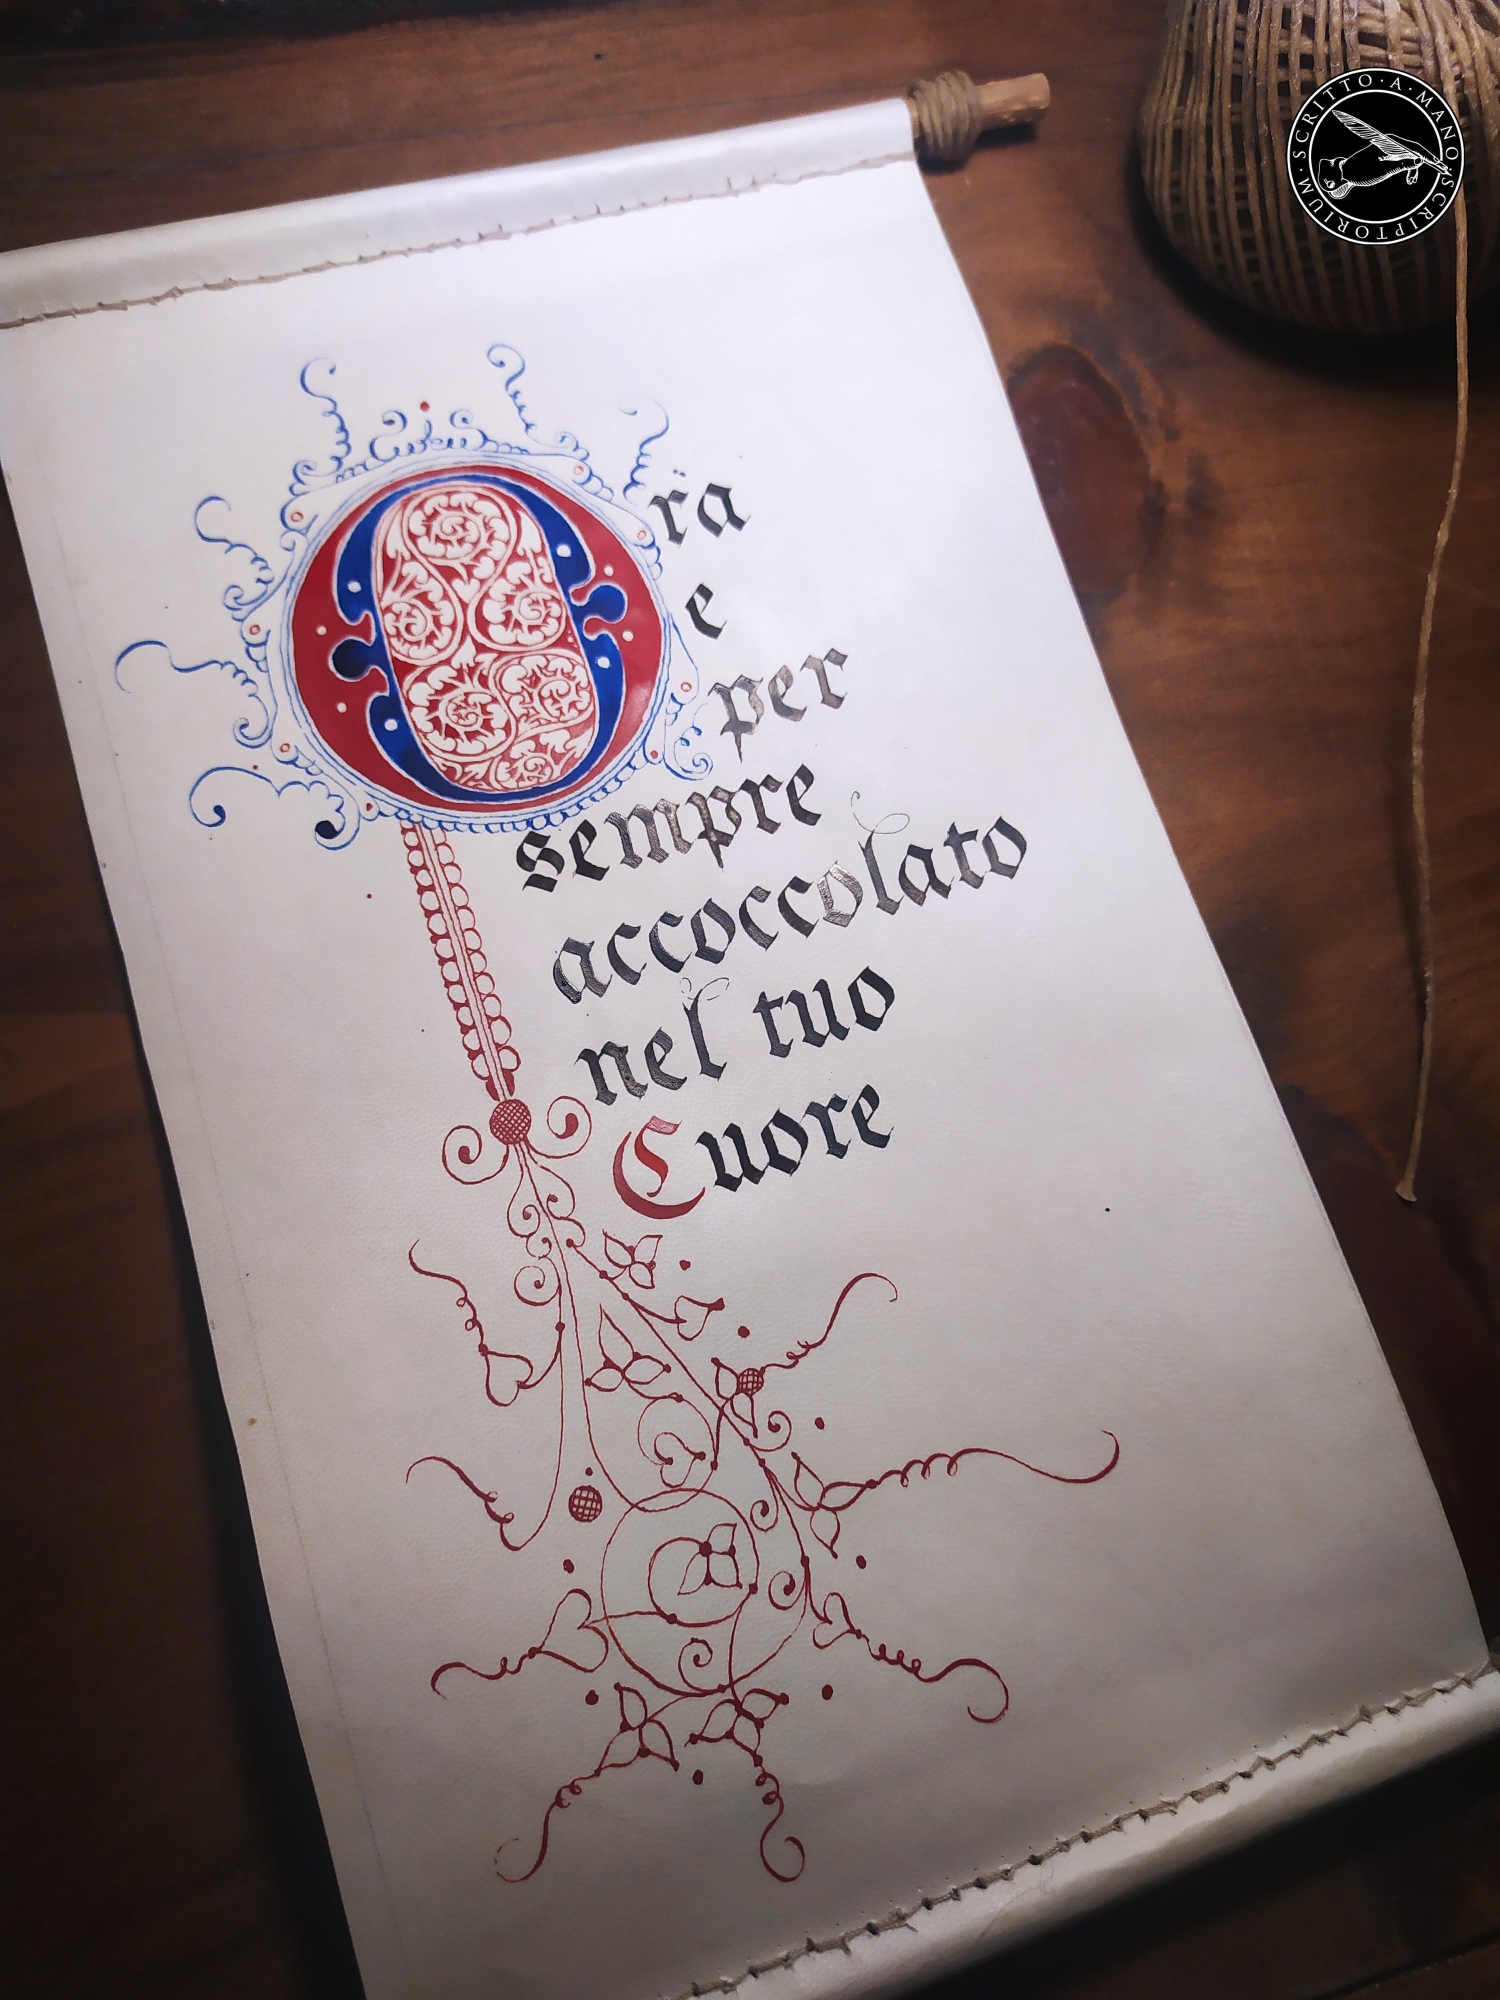 SCRITTO · A · MANO · SCRIPTORIUM ·
Ora
e
per
sempre
accoccolato
nel tuo
Cuore